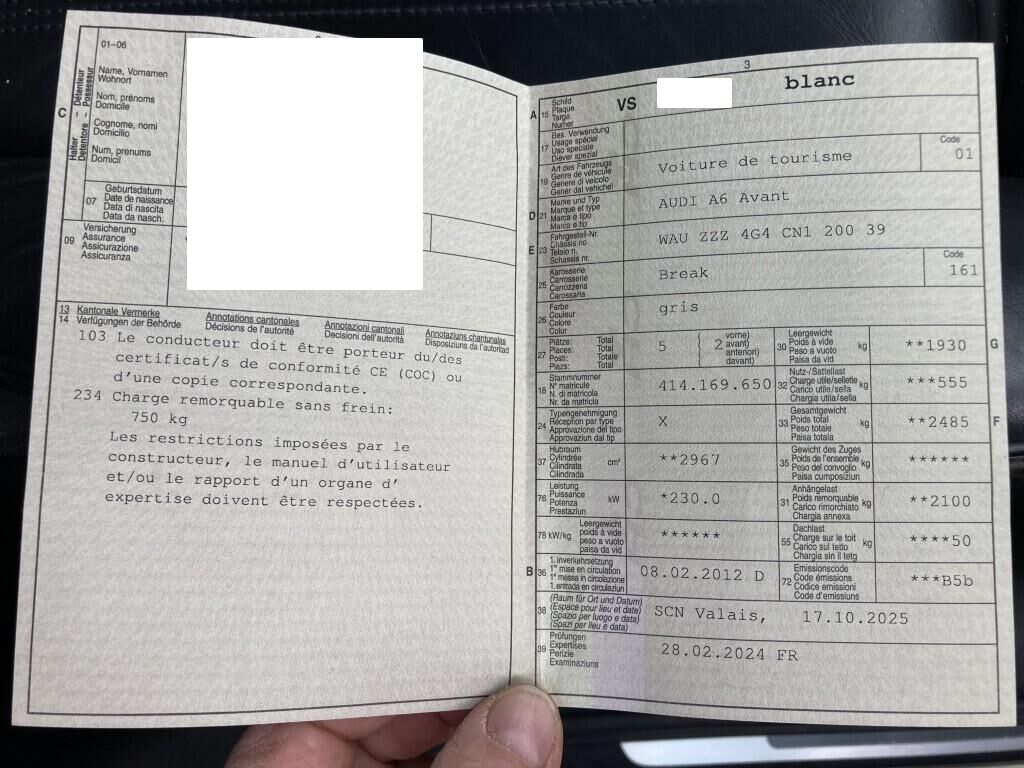 01-06
Name, Vornamen
Wohnort
Nom, prénoms
Domicile
Cognome, nomi
Domicilio
Num, prenums
Domicil
C
Halter – Détenteur
Detentore – Possessur
07
Geburtsdatum
Date de naissance
Data di nascita
Data da nasch.
09
Versicherung
Assurance
Assicurazione
Assicuranza
13 Kantonale Vermerke Annotations cantonales Annotazioni cantonali Annotaziuns chantunalas
14 Verfügungen der Behörde Décisions de l'autorité Decisioni dell'autorità Disposiziuns da l'autoritad
103 Le conducteur doit être porteur du/des
certificat/s de conformité CE (COC) ou
d'une copie correspondante.
234 Charge remorquable sans frein:
750 kg
Les restrictions imposées par le
constructeur, le manuel d'utilisateur
et/ou le rapport d'un organe d'
expertise doivent être respectées.
3
A 15
Schild
Plaque
Targa
Numer
VS blanc
17
Bes. Verwendung
Usage spécial
Uso speciale
Diever spezial
19
Art des Fahrzeugs
Genre de véhicule
Genere di veicolo
Gener dal vehichel
Voiture de tourisme
Code
01
D 21
Marke und Typ
Marque et type
Marca e tipo
Marca e tip
AUDI A6 Avant
E 23
Fahrgestell-Nr.
Châssis no
Telaio n.
Schassis nr.
WAU ZZZ 4G4 CN1 200 39
25
Karosserie
Carrosserie
Carrozzeria
Carossaria
Break
Code
161
26
Farbe
Couleur
Colore
Colur
gris
27
Plätze: Total
Places: Total
Posti: Totale
Plazs: Total
5 ( 2 vorne)
avant)
anteriori)
davant)
30
Leergewicht
Poids à vide
Peso a vuoto
Paisa da vid
kg
**1930
G
18
Stammnummer
N° matricule
N. di matricola
Nr. da matricla
414.169.650
32
Nutz-/Sattellast
Charge utile/sellette
Carico utile/sella
Chargia utila/sella
kg
***555
24
Typengenehmigung
Réception par type
Approvazione del tipo
Approvaziun dal tip
X
33
Gesamtgewicht
Poids total
Peso totale
Paisa totala
kg
**2485
F
37
Hubraum
Cylindrée
Cilindrata
Cilindrada
cm³
**2967
35
Gewicht des Zuges
Poids de l'ensemble
Peso del convoglio
Paisa cumposiziun
kg
******
76
Leistung
Puissance
Potenza
Prestaziun
kW
*230.0
31
Anhängelast
Poids remorquable
Carico rimorchiato
Chargia annexa
kg
**2100
78 kW/kg
Leergewicht
poids à vide
peso a vuoto
paisa da vid
******
55
Dachlast
Charge sur le toit
Carico sul tetto
Chargia sin il tetg
kg
****50
B 36
1. Inverkehrsetzung
1re mise en circulation
1a messa in circolazione
1. entrada en circulaziun
08.02.2012 D
72
Emissionscode
Code émissions
Codice emissioni
Code d'emissiuns
***B5b
38
(Raum für Ort und Datum)
(Espace pour lieu et date)
(Spazio per luogo e data)
(Spazi per lieu e data)
SCN Valais, 17.10.2025
39
Prüfungen
Expertises
Perizie
Examinaziuns
28.02.2024 FR